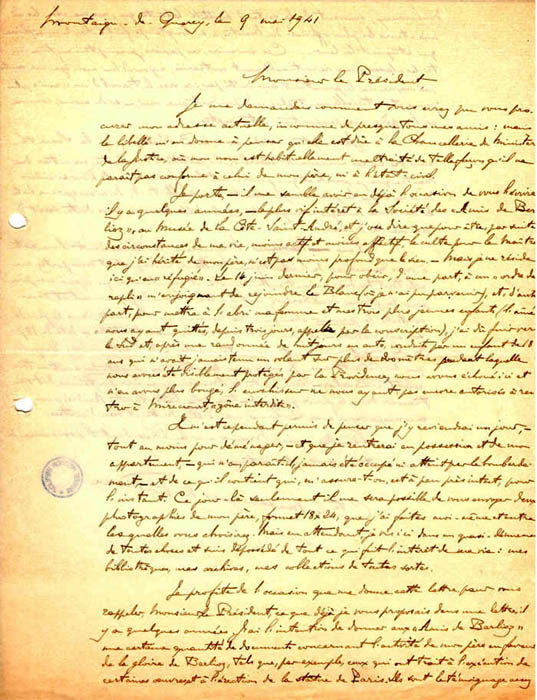 Montaigu-de-Quercy, le 9 mai 1941
Monsieur le Président,
Je me demandais comment vous avez pu vous pro-
curer mon adresse actuelle, inconnue de presque tous mes amis : mais
le libellé m'en donne à penser qu'elle est due à la Chancellerie du Ministère
de la Justice, où mon nom est habituellement maltraité de telle façon qu'il ne
paraît pas conforme à celui de mon père, ni à l'état civil.
Je porte, - il me semble avoir eu déjà l'occasion de vous l'écrire
il y a quelques années, - le plus vif intérêt à la Société des « Amis de Ber-
lioz », au Musée de la Côte-Saint-André, et j'ose dire que pour être, par suite
des circonstances de ma vie, moins actif et moins effectif, le culte pour le Maître
que j'ai hérité de mon père, n'est pas moins profond que le sien. - Mais je ne réside
ici qu'en « réfugié ». Le 16 juin dernier, pour obéir, d'une part, à un « ordre de
repli » m'enjoignant de rejoindre Le Blanc (où je n'ai pu parvenir), et, d'autre
part, pour mettre à l'abri ma femme et mes trois plus jeunes enfants (l'aîné
nous ayant quittés, depuis trois jours, appelé par la conscription), j'ai dû fuir vers
le Sud et après une randonnée de huit jours en auto, conduit par un enfant de 18
ans qui n'avait jamais tenu un volant sur plus de dix mètres, pendant laquelle
nous avons été visiblement protégés par la Providence, nous avons échoué ici et
n'en avons plus bougé, l'envahisseur ne nous ayant pas encore autorisés à ren-
trer à Mirecourt, « zone interdite ».
Il m'est cependant permis de penser que j'y reviendrai un jour, -
tout au moins pour déménager, - et que je rentrerai en possession et de mon
appartement - qui n'a, paraît-il, jamais été occupé ni atteint par le bombarde-
ment, - et de ce qu'il contient qui, m'assure-t-on, est à peu près intact, pour
l'instant. Ce jour-là seulement il me sera possible de vous envoyer deux
photographies de mon père, format 18x24, que j'ai faites moi-même et entre
lesquelles vous choisirez. Mais en attendant, je vis ici dans un quasi-dénuement
de toutes choses et suis dépossédé de tout ce qui fait l'intérêt de ma vie : mes
bibliothèques, mes archives, mes collections de toutes sortes.
Je profite de l'occasion que me donne cette lettre pour vous
rappeler, Monsieur le Président, ce que déjà je vous proposais dans une lettre, il
y a quelques années. J'ai l'intention de donner aux « Amis de Berlioz »
une certaine quantité de documents concernant l'activité de mon père en faveur
de la gloire de Berlioz, tels que, par exemple, ceux qui ont trait à l'exécution de
certaines œuvres et à l'érection de la statue de Paris. Ils sont le témoignage avec